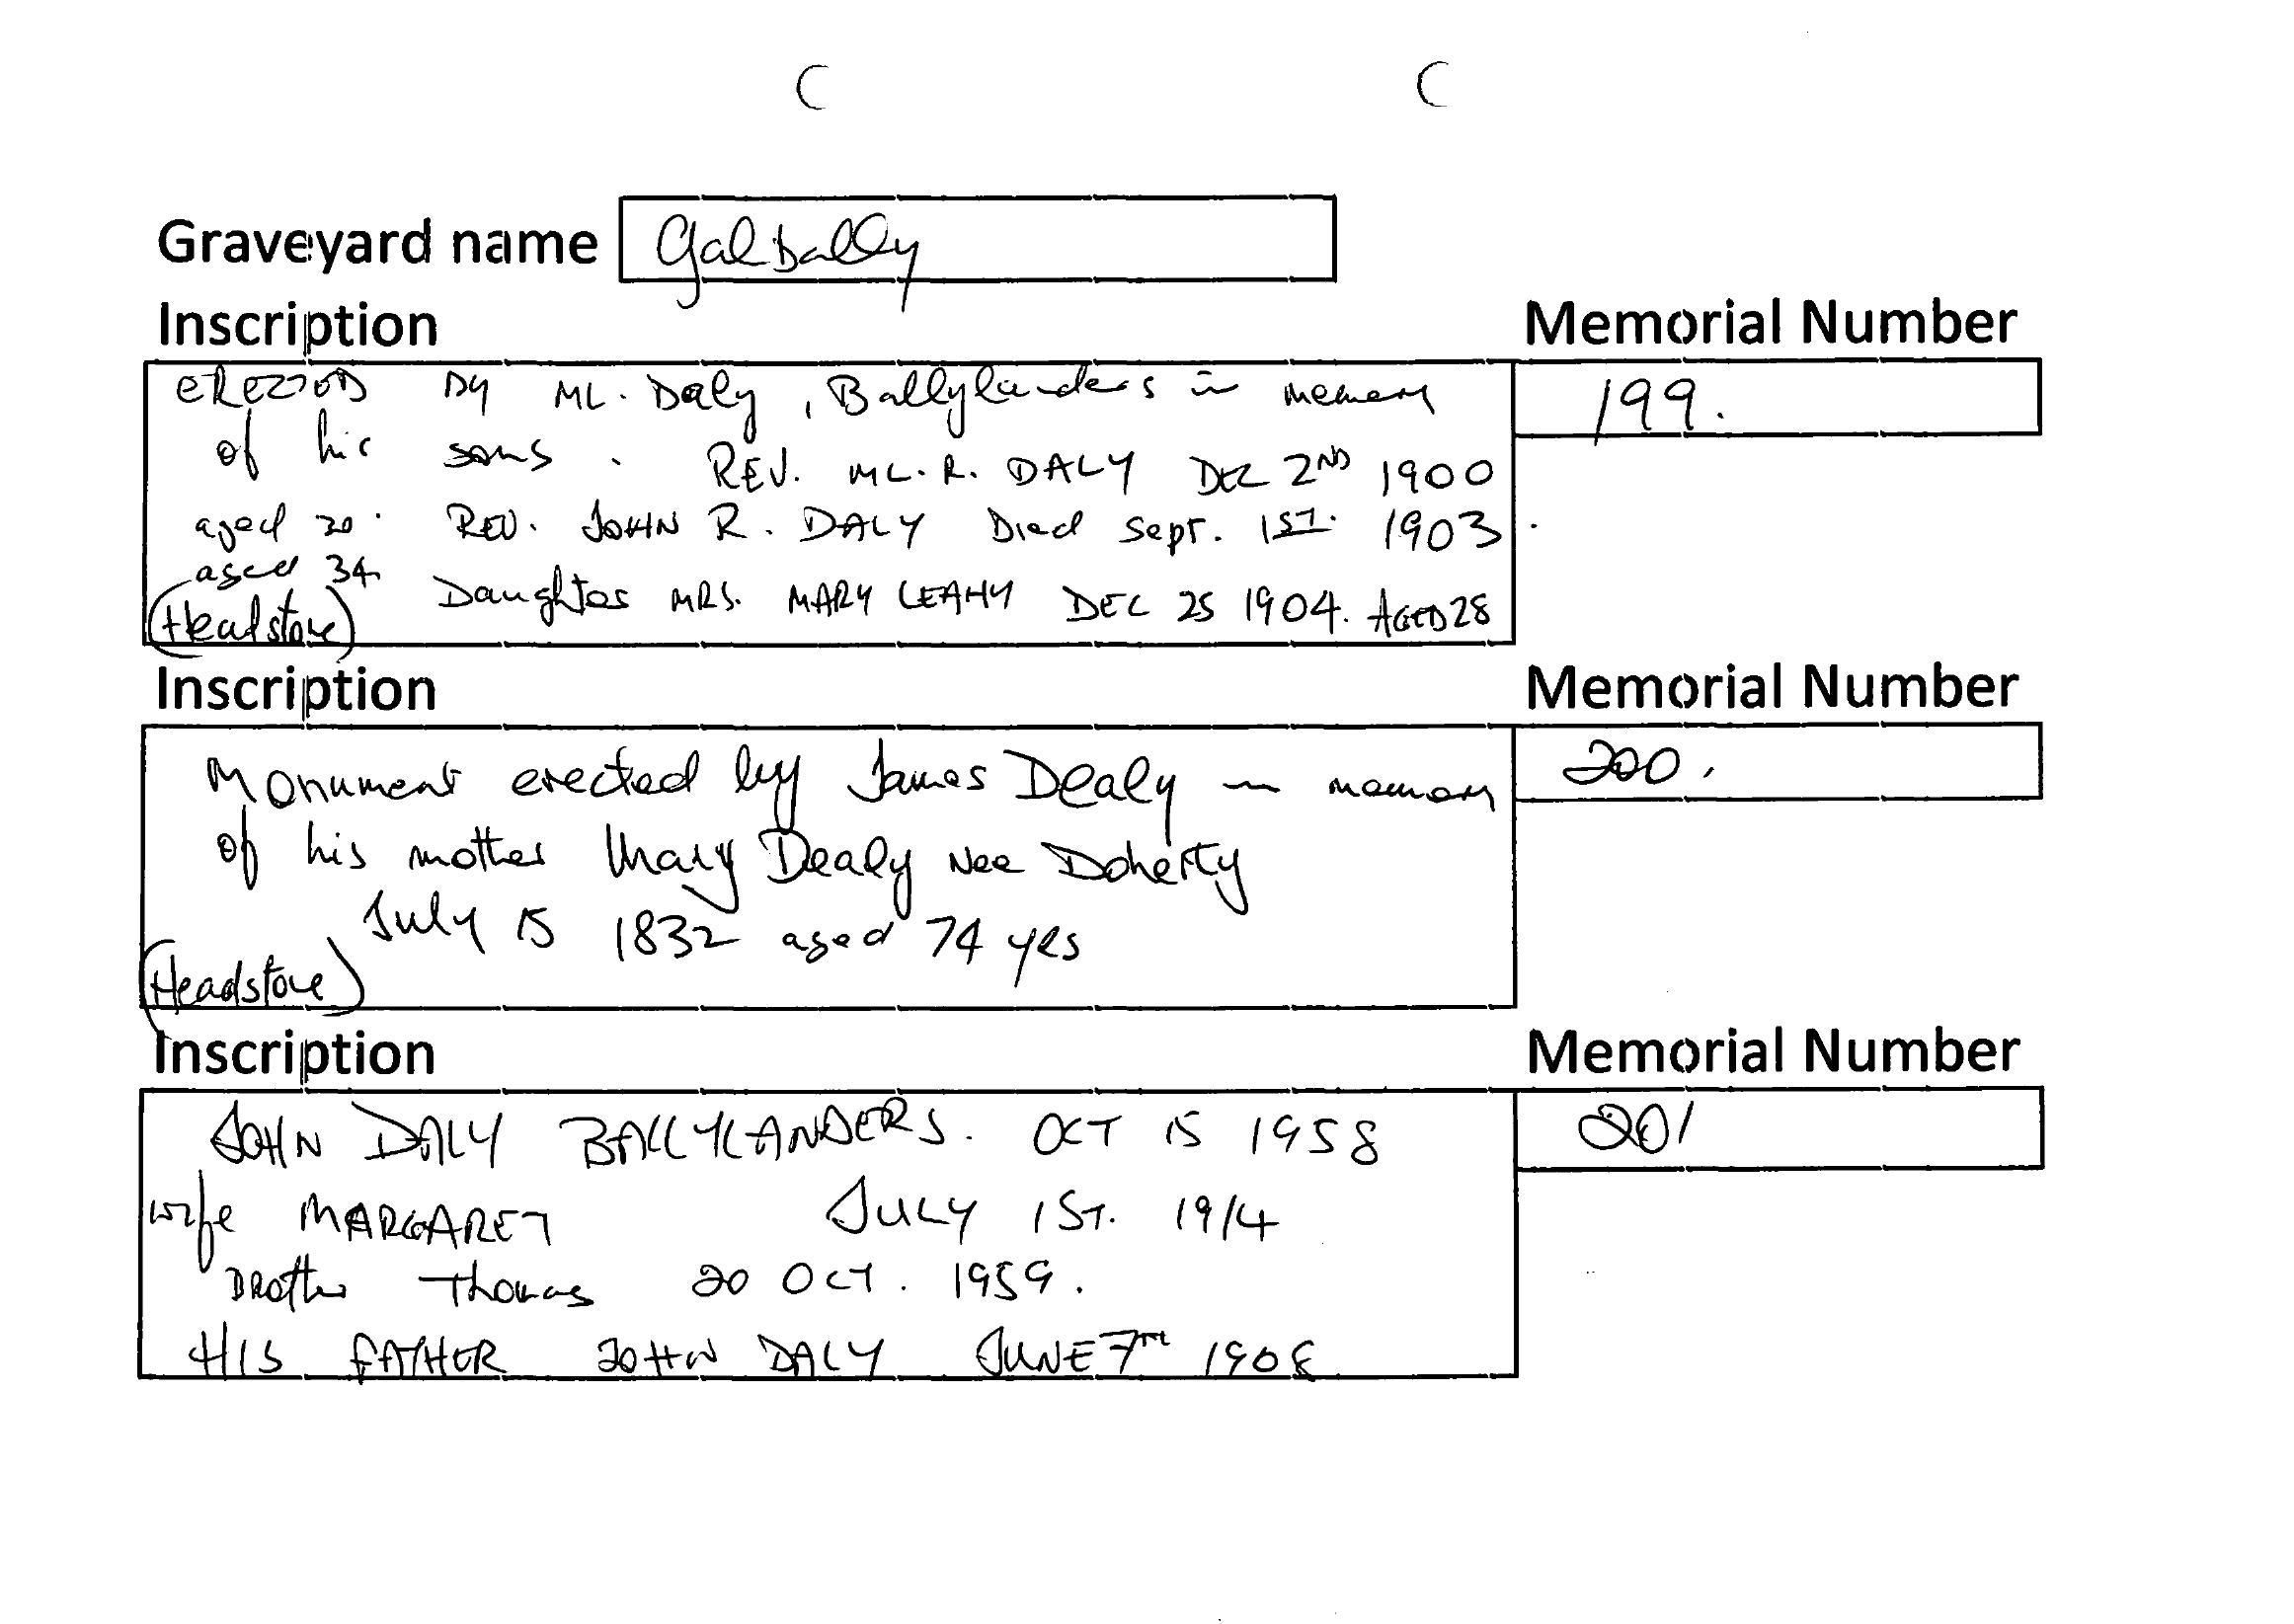 Graveyard name Galbally
Inscription Memorial Number
ERECTED BY ML. Daly, Ballylanders in memory 199.
of his sons. REV. ML. R. DALY DEC 2ND 1900
aged 30. REV. JOHN R. DALY Died Sept. 1ST. 1903.
aged 34
Daughter MRS. MARY LEAHY DEC 25 1904. AGED 28
(Headstone)
Inscription Memorial Number
Monument erected by James Dealy in memory 200.
of his mother Mary Dealy Nee Doherty
July 15 1832 aged 74 yrs
(Headstone)
Inscription Memorial Number
JOHN DALY BALLYLANDERS. OCT 15 1958 201
wife MARGARET JULY 1ST. 1914
Brother Thomas 20 OCT. 1959.
HIS FATHER JOHN DALY JUNE 7TH 1908